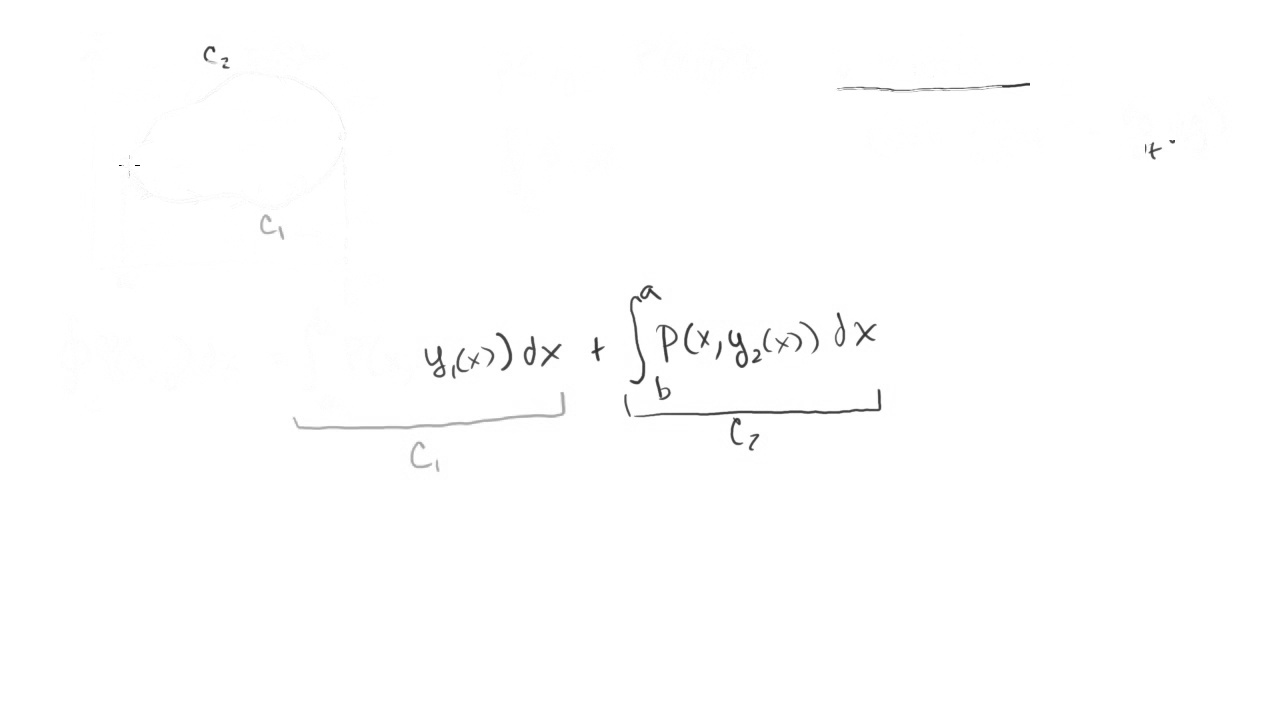 C₂
C₁
y₁(x)) dx + ∫_b^a P(x, y₂(x)) dx
C₁ C₂